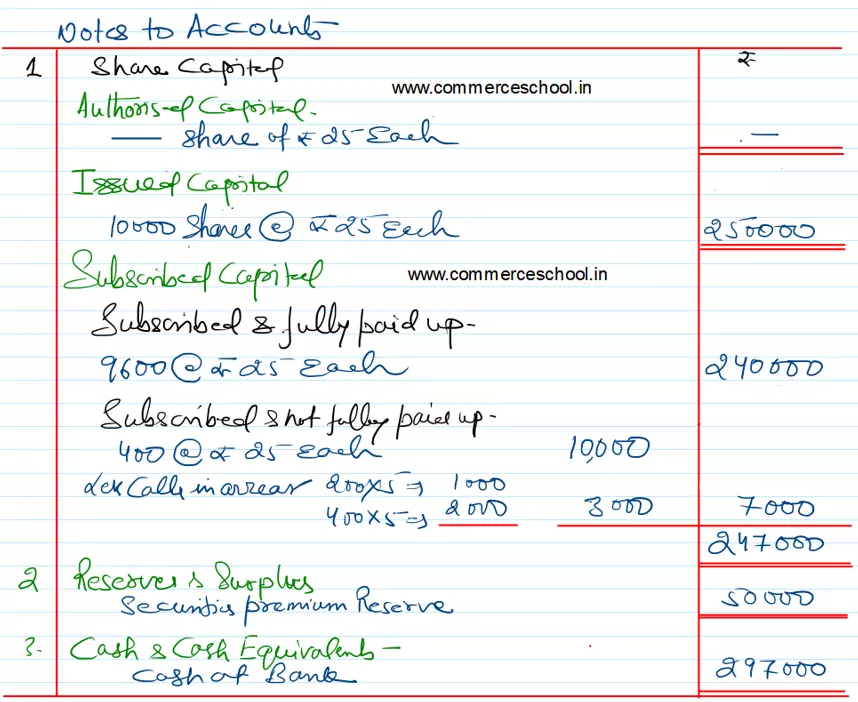 Notes to Accounts
1 Share Capital ₹
www.commerceschool.in
Authorised Capital.
— Share of ₹ 25 Each —
Issued Capital
10000 Shares @ ₹ 25 Each 250000
Subscribed Capital www.commerceschool.in
Subscribed & fully paid up-
9600 @ ₹ 25 Each 240000
Subscribed & not fully paid up-
400 @ ₹ 25 Each 10,000
Less Calls in arrear 200x5 ⇒ 1000
400x5 ⇒ 2000 3000 7000
247000
2 Reserves & Surplus
Securities premium Reserve 50000
3. Cash & Cash Equivalents -
Cash at Bank 297000